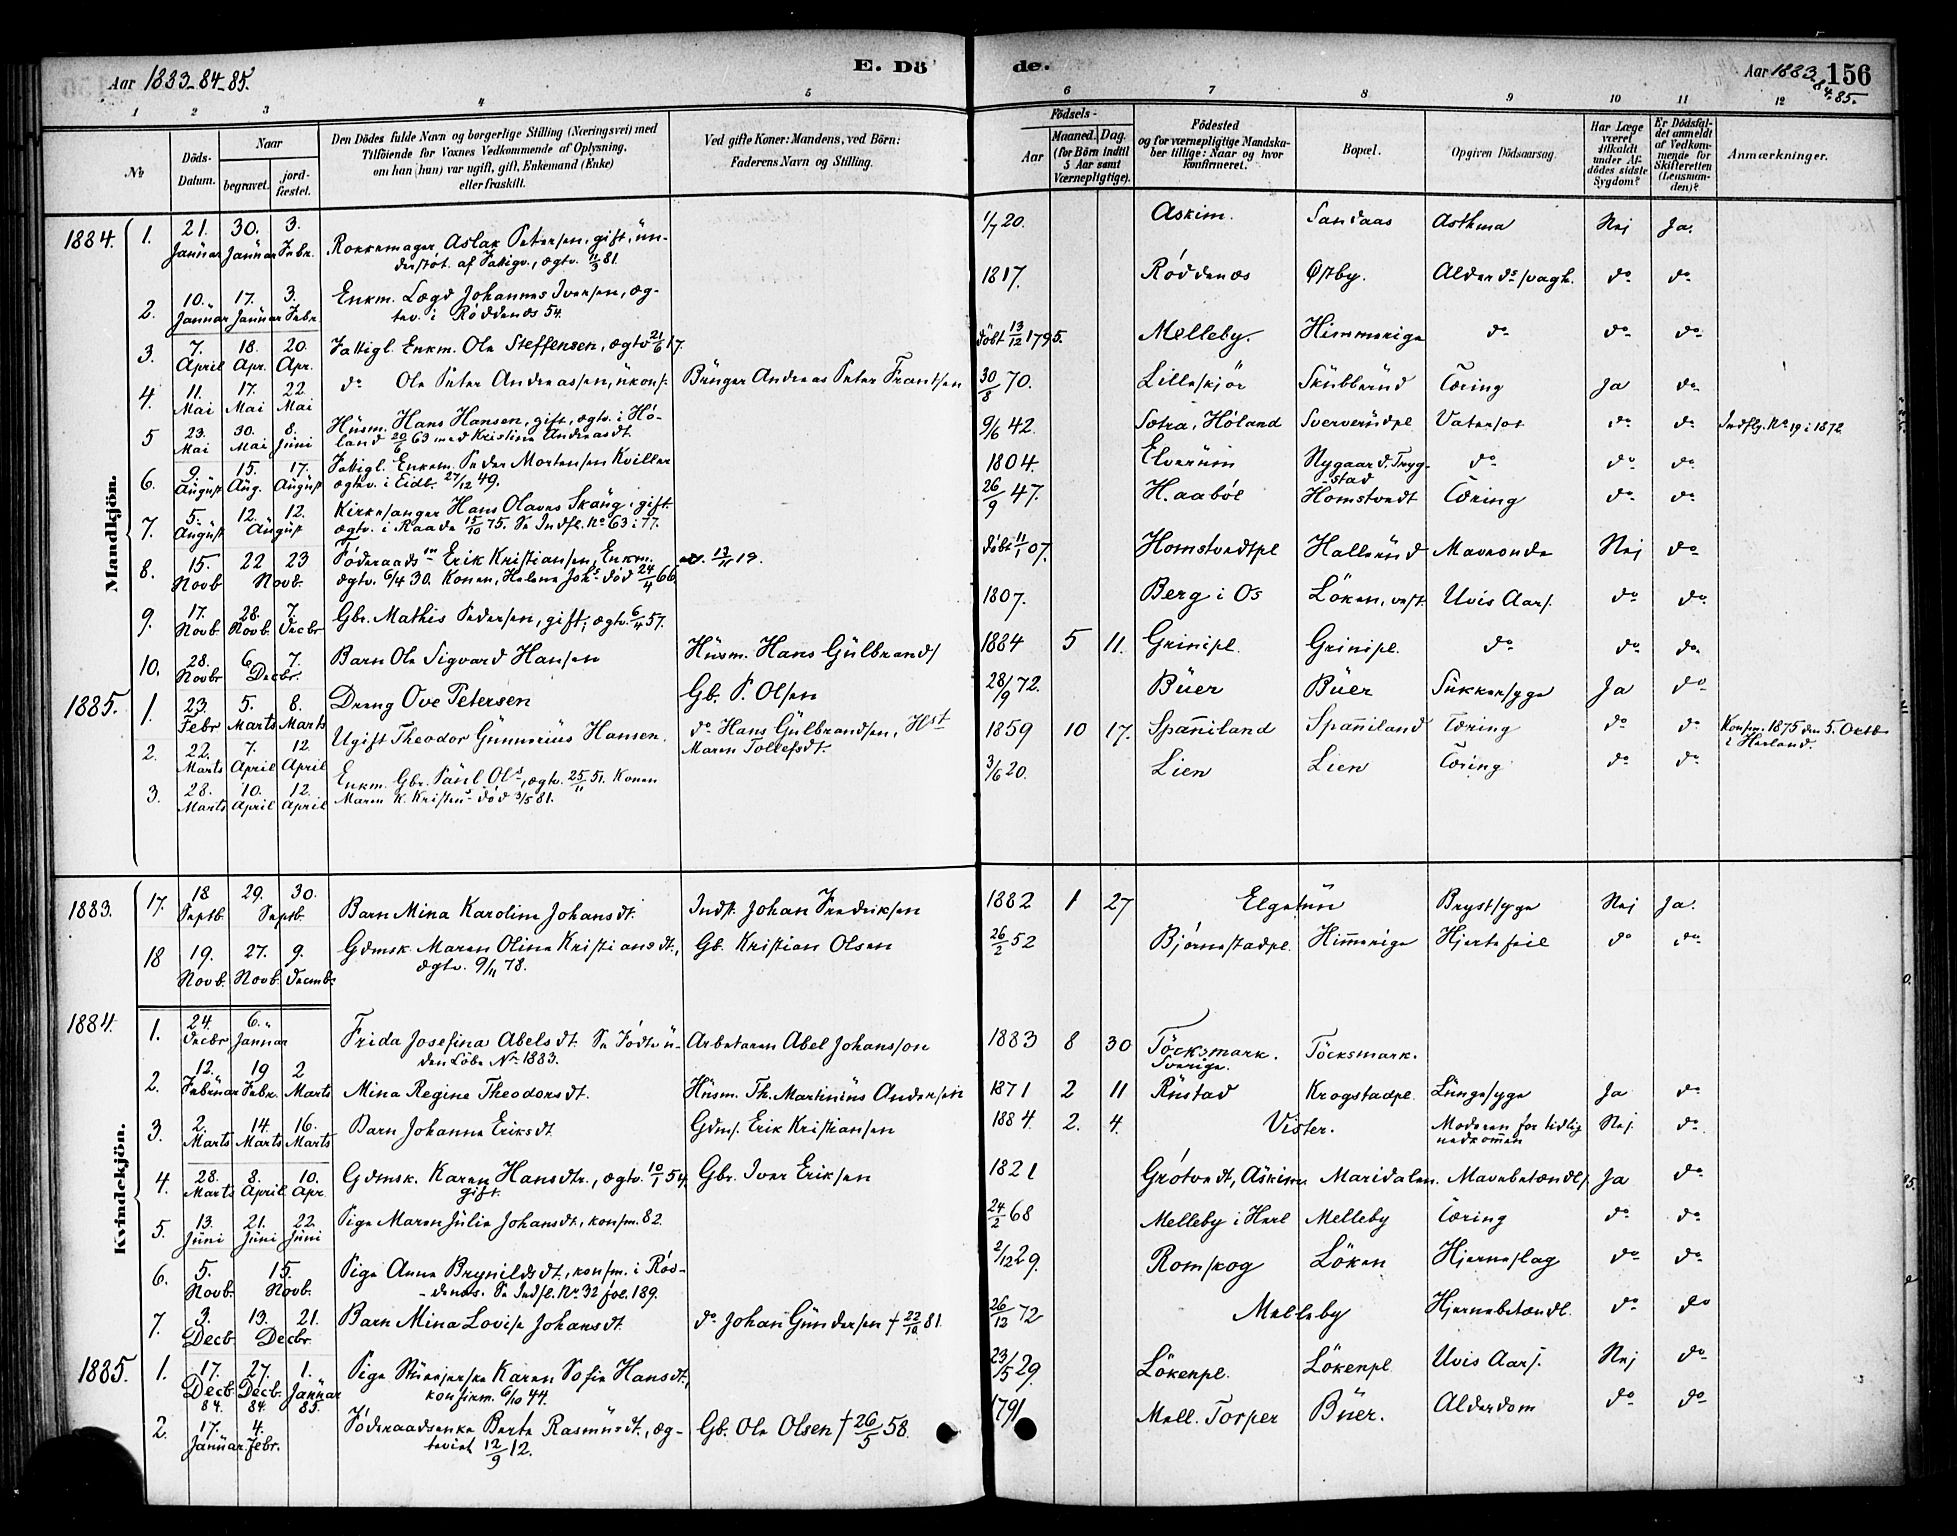 Aar 1883-84-85.
E. Dö
de.
Aar 1883-84-85.
156
1 2 3 4 5
6 7 8 9 10 11 12
No
Döds-Datum.
Naar
begravet.
jord-fæstet.
Den Dödes fulde Navn og borgerlige Stilling (Næringsvei) med
Tilföiende for Voxnes Vedkommende af Oplysning,
om han (hun) var ugift, gift, Enkemand (Enke)
eller fraskilt.
Ved gifte Koner: Mandens, ved Börn:
Faderens Navn og Stilling.
Födsels-
Aar
Maaned. Dag.
(for Börn indtil
5 Aar samt
Værnepligtige).
Födested
og for værnepligtige Mandska-
ber tillige: Naar og hvor
konfirmeret.
Bopæl.
Opgiven Dödsaarsag.
Har Læge
været
tilkaldt
under Af-
dödes sidste
Sygdom?
Er Dödsfal-
det anmeldt
af Vedkom-
mende for
Skifteretten
(Lensman-
den)?
Anmærkninger.
Mandkjön.
1884. 1. 21. Januar 30. Januar 3. Febr. Rokkemager Aslak Petersen, gift, un-
derstøt. af Fattigv., ægtv. 11/3 81. 1/7 20. Askim. Sandaas Asthma Nej Ja.
2. 10. Januar 17. Januar 3. Febr. Enkm. Lægd Johannes Iversen, æg-
tev. i Røddenæs 54. 1817. Røddenæs Østby. Alderdsvagh. do do
3. 7. April 18. Apr. 20. Apr. Fattigl. Enkm. Ole Steffensen, ægtv 21/6 17. döbt 13/12 1795. Melleby. Himmerige do do do
4. 11. Mai 17. Mai 22. Mai do Ole Peter Andreassen, ukonf. Bünger Andreas Peter Frantsen 30/8 70. Lilleskjör Skubberud Tæring Ja do
5 23. Mai 30. Mai 8. Juni Husm. Hans Hansen, gift, ægtv. i Hö-
land 20/6 63 med Kristine Andreasdt. 9/6 42. Sotra, Höland Sververudpl Vatersot do do Indflg. No 19 i 1872.
6. 9. August 15. Aug. 17. August Fattigl. Enkem. Peder Mortensen Kviller
ægtv. i Eidb. 27/12 49. 1804. Elverum Nygaard. Tryg-
stad do do do
7. 5. August 12. 12. August Kirkesanger Hans Olaves Skaug, gift
ægtv. i Raade 15/10 75. Se Indfl. No 63 i 77. 26/9 47. H.aaböl Homstvedt Tæring do do
8. 15. Novb 22 23 Novb. Föderaadsm Erik Kristiansen, Enkm.
ægtv. 6/4 30. Konen, Helene Johs død 24/4 66. döbt 11/1 07. Homstvedtpl Hallerud Maveonde Nej do
9. 17. Novb. 28. Novb. 7. Decbr Gbr. Mathis Pedersen, gift, ægtv. 6/4 57. 1807. Berg i Os Löken, vest. Uvis Aars. do do
10. 28. Novbr 6. 7. Decbr. Barn Ole Sigvard Hansen Husm. Hans Gulbrands 1884 5 11. Grinipl. Grinipl. do do do
1885. 1. 23. Febr 5. Marts 8. Marts Dreng Ove Petersen Gb. P. Olsen 28/9 72. Buer Buer Sukkersyge Ja do
2. 22. Marts 7. April 12 April Ugift Theodor Gunnerius Hansen. do Hans Gulbrandsen, Hst
Maren Tollefsdt. 1859 10 17. Spaniland Spaniland Tæring do do Konfirm. 1875 den 5. Octb
i Herland.
3. 28. Marts 10. April 12. April Enkm. Gbr. Paul Ols, ægtv. 25/11 51. Konen
Maren K. Kristens død 3/5 81. 3/6 20. Lien Lien Tæring do do
Kvindekjön.
1883. 17. 18 Septb. 29. 30. Septb. Barn Mina Karoline Johansdt. Indst. Johan Fredriksen 1882 1 27 Elgetun Brystsyge Nej Ja.
18 19. Novb. 27. Novb. 9. Decmb. Gdmsk. Maren Oline Kristiansdt.,
ægtv. 9/11 78. Gb. Kristian Olsen 26/2 52 Bjørnestadpl. Himerige Hjertefeil do do
1884. 1. 24. Decbr 6. Januar Frida Josefina Abelsdt. Se Födte u-
den Löbe No 1883. Arbetaren Abel Johansson 1883 8 30 Töcksmark.
Sverige. Töcksmark.
2. 12. Februar 19 Febr. 2 Marts Mina Regine Theodorsdt. Husm. Th. Martinius Andersen 1871 2 11 Rustad Krogstadpl. Lungesyge Ja do
3. 2. Marts 14. Marts 16. Marts Barn Johanne Eriksdt. Gdms. Erik Kristiansen 1884. 2. 4. Vister. Moderen for tidlig
nedkommen Nej. do
4. 28. Marts 8. April 10. Apr. Gdmsk. Karen Hansdtr., ægtv. 10/1 54
gift. Gbr. Iver Eriksen 1821 Grötvedt, Askim Maridalen. Mavebetændls. Ja do
5. 13. Juni 21. Juni 22. Juni Pige Maren Julie Johansdt., konfm. 82. 24/2 68 Melleby i Herl Melleby Tæring do do
6. 5. Novb. 15. Novb. Pige Anne Brynildsdt., konfm. i Rös-
denæs. Se Indfl. No 32 fol. 189. 2/12 29. Romskog Löken Hjerneslag do do
7. 3. Decb 13. 21. Decbr. Barn Mina Lovise Johansdt. do Johan Gundersen † 22/10 81. 26/12 72 Melleby Hjernebetændl. do do
1885. 1. 17. Decb. 84. 27. Decb. 84. 1. Januar 85. Pige Karen Sofie Hansdt.,
konfirm. 6/10 44. 23/5 29. Lökenpl. Lökenpl Uvis Aars. Nej do
2. 17. Januar 4. Febr. Föderaadsenke Berte Rasmusdt., æg-
teviet 12/9 12. Gb. Ole Olsen † 26/5 58. 1791 Mell. Torper Buer. Alderdom do do